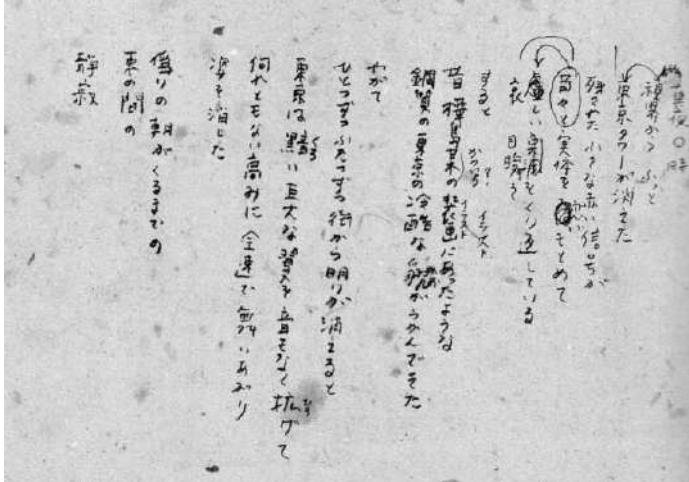 視界から ふっと
東京タワーが消えた
残された小さな赤い信号が
苛々と実体を もとめて
虚しい点滅をくり返している
哀 目瞬き
すると
昔 樺島勝一の装画にあったような
鋼質の東京の冷酷な貌がうかんできた
やがて
ひとつずつふたつずつ街から明りが消えると
東京は黯い巨大な翼を音もなく拡げて
何れともない高みに 全速で舞いあがり
姿を消した
偽りの朝がくるまでの
束の間の
静寂